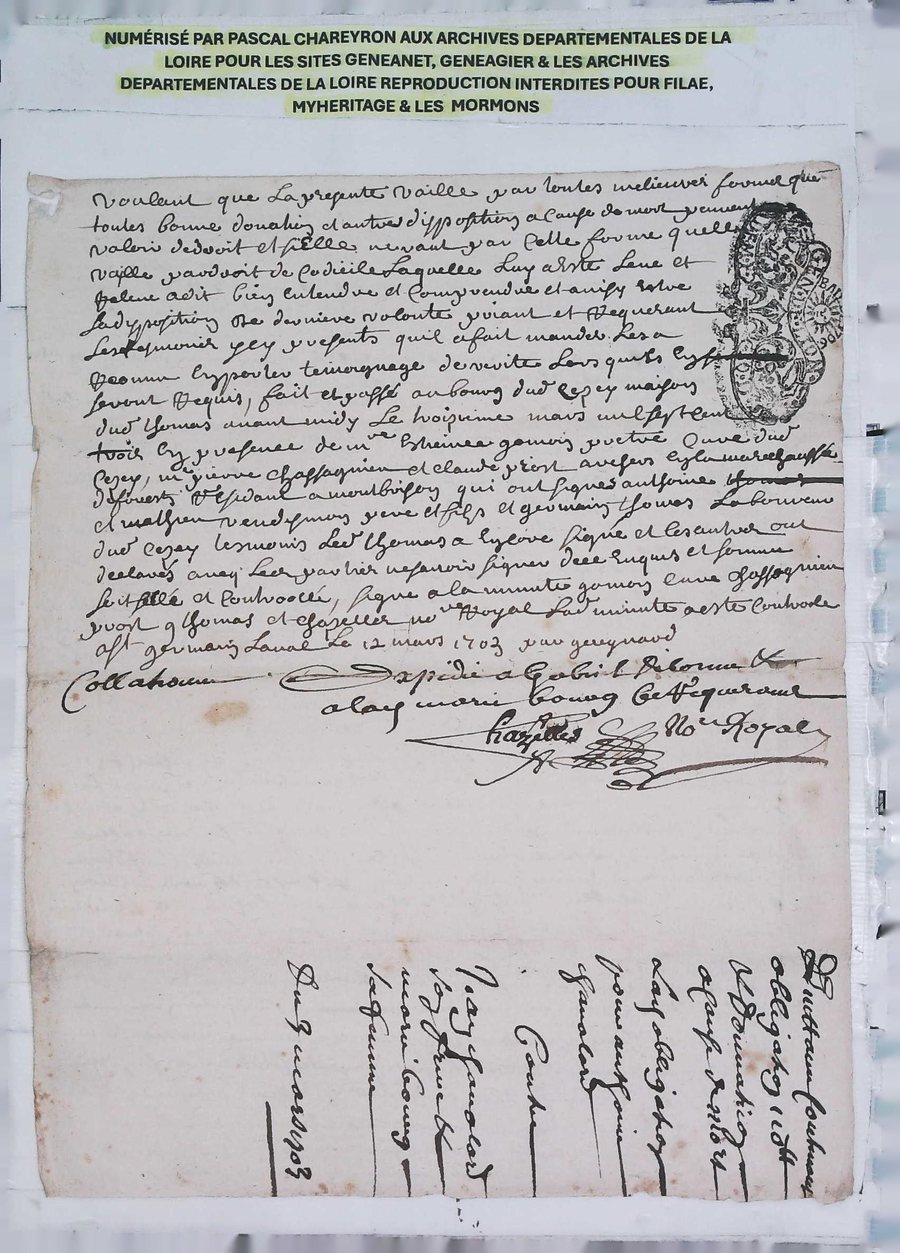 NUMÉRISÉ PAR PASCAL CHAREYRON AUX ARCHIVES DEPARTEMENTALES DE LA
LOIRE POUR LES SITES GENEANET, GENEAGIER & LES ARCHIVES
DEPARTEMENTALES DE LA LOIRE REPRODUCTION INTERDITES POUR FILAE,
MYHERITAGE & LES MORMONS
voulant que la presente vaille par toutes melieures formes que
toutes bonne donation et autre disposition a cause de mort peuvent
valoir de droit et sy elle ne vaut par cette forme quelle
vaille par droit de codicile laquelle luy a este leue et
releue a dit bien entendre et comprendre et ainsy estre
sa disposition de derniere volonte priant et requerant
les tesmoins ysy presents quil a fait mander les a
reconnu en porter temoignage de verite lorsquils en
seront requis, fait et passé au bourg dud cezay maison
dud thomas avant midy le troizieme mars mil sept cent
trois en presence de mre estienne gomois pretre curé dud
cezay, mre pierre chassagnieu et claude priost archers en la marechaussée
de forests residant a montbrison qui ont signé anthoine
et mathieu vendesmond pere et fils et germain thomas laboureur
dud cezay tesmoins led thomas a encore signé et les autres ont
declarés avec led par ne scavoir signer de ce enquis et sommé
scellé et controllé, signé a la minute gomois curé chassagnieu
priost g thomas et chazelles nore Royal lad minute a este controlé
a st germain laval le 12 mars 1703 par
Collationné Expedié a
marie bourg ce requerant
Chazelles Nore Royal
GEN DE LION
obligation
et donnation
a cause de mort
obligation
pour anthoine
Contre
marie bourg
sa femme
Du 3 mars 1703